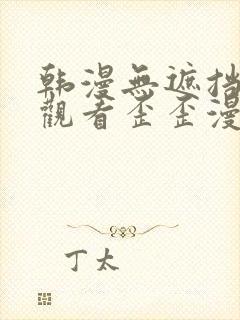 韩漫無遮挡
觀看歪歪漫
丁太